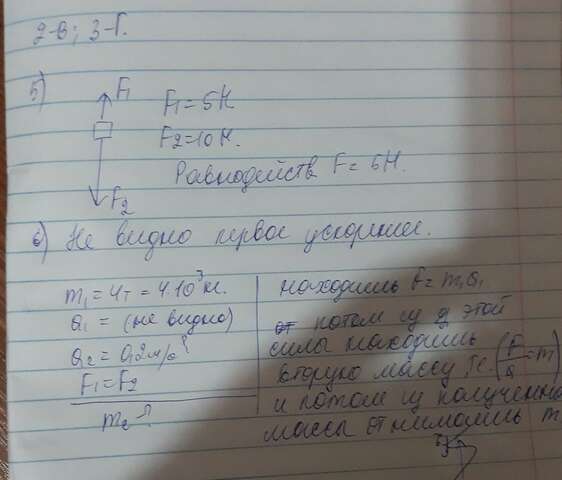 2-в; 3-Г.
5)
F1
F1=5H
F2=10H.
F2
Равнодейств F= 5H.
6) Не видно первое ускорение.
m1=4т=4·10³кг.
a1= (не видно)
a2=0,2м/с²
F1=F2
m2-?
находишь F=m1a1
потом из этой
силы находишь
вторую массу т.е. (F/a=m)
и потом из полученно
массы отнимаешь m